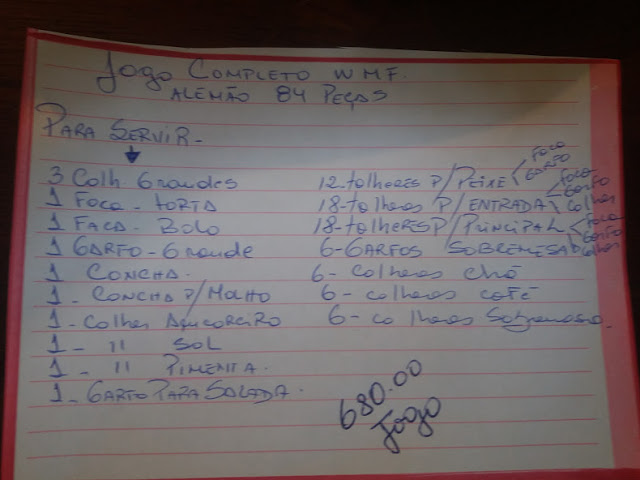 Jogo Completo WMF.
Alemão 84 Peças
Para Servir-
3 Colh Grandes
1 Faca - Torta
1 Faca - Bolo
1 Garfo - Grande
1 Concha.
1 - Concha p/ Molho
1 - Colher Açucareiro
1 - " Sal
1 - " Pimenta.
1 - Garfo Para Salada.
12-talheres p/ Peixe Faca Garfo
18-talheres p/ Entrada Faca Garfo Colher
18-talheres p/ Principal Faca Garfo Colher
6-Garfos Sobremesa
6- Colheres chá
6- colheres café
6- colheres Sobremesa.
680.00
Jogo